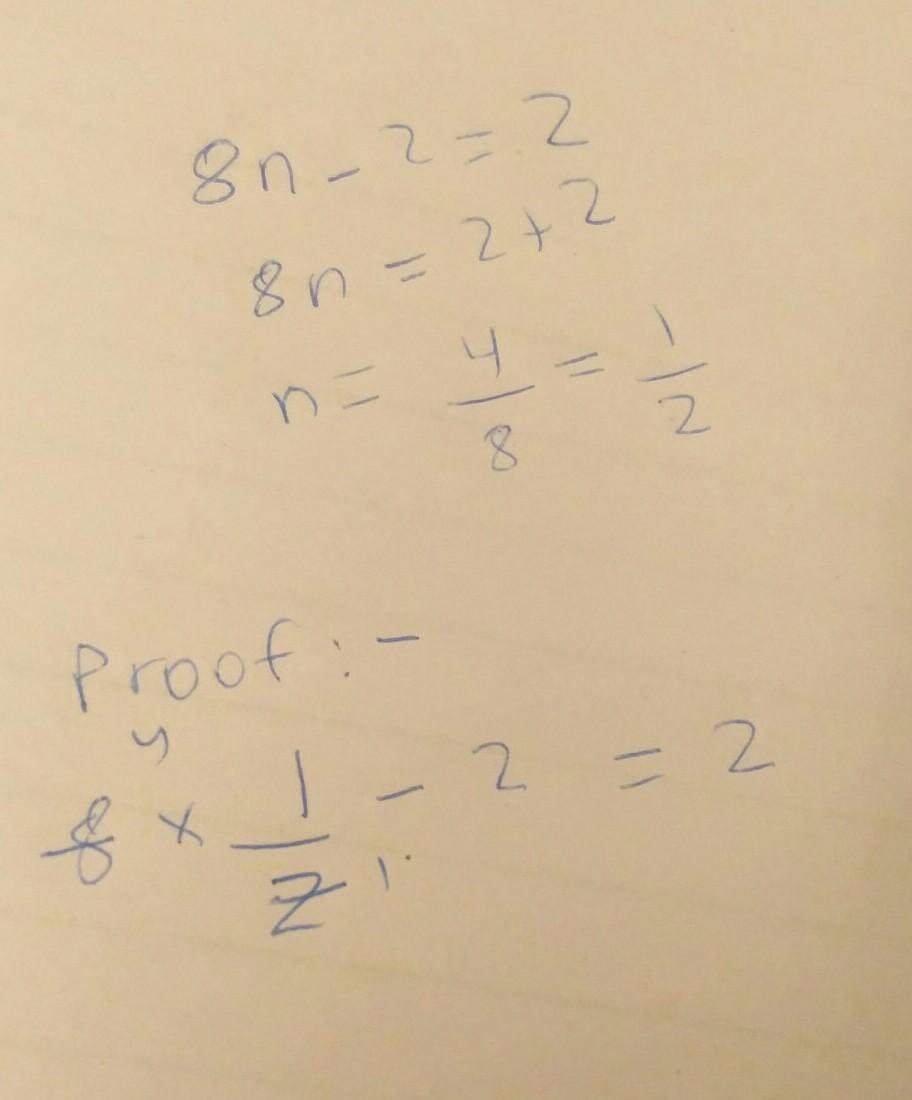 8n - 2 = 2
8n = 2 + 2
n = 4/8 = 1/2
Proof :-
4
8 × 1/2 1 - 2 = 2